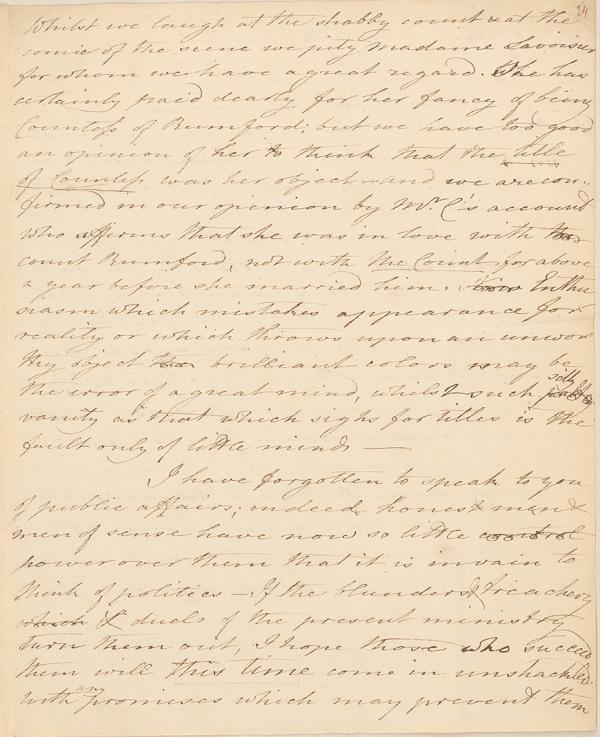 24
Whilst we laugh at the shabby count & at the
comic of the scene we pity Madame Lavoisier
for whom we have a great regard. She has
certainly paid dearly for her fancy of being
Countess of Rumford; but we have too good
an opinion of her to think that the title
of Countess was her object – and we are con-
firmed in our opinion by Mr. C's account
who affirms that she was in love with
count Rumford, not with the Count, for above
a year before she married him. Enthu
siasm which mistakes appearance for
reality or which throws upon an unwor
thy object brilliant colors may be
the error of a great mind, whilst such silly
vanity as that which sighs for titles is the
fault only of little minds —
I have forgotten to speak to you
of public affairs; indeed honest men &
men of sense have now so little control
power over them that it is in vain to
think of politics – If the blunders & treachery
which & duels of the present ministry
turn them out, I hope those who succeed
them will this time come in unshackled
with any promises which may prevent them